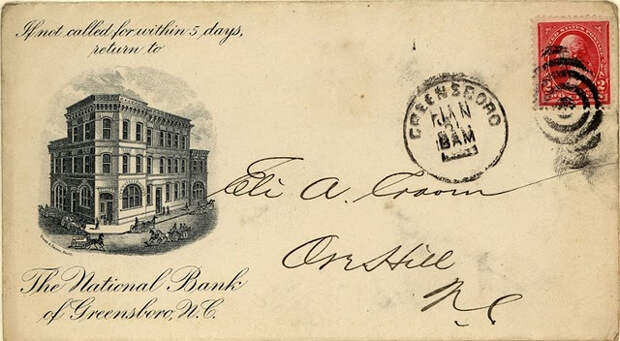 If not called for within 5 days,
return to
The National Bank
of Greensboro, N.C.
GREENSBORO
8AM
Eli A. Croom
Ore Hill
N.C.